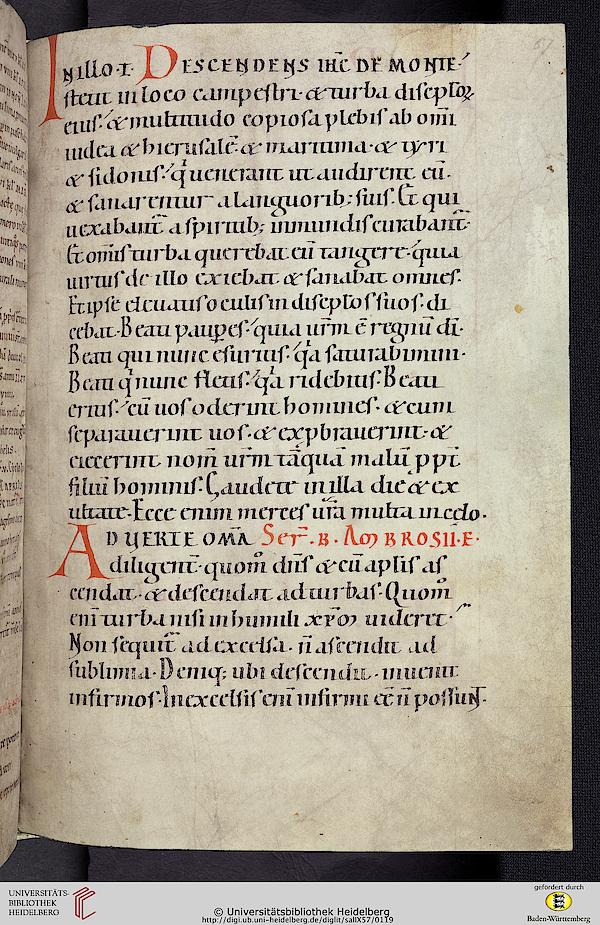 57
IN illo·t· DESCENDENS ihc̄ DE MONTE·
stetit in loco campestri· & turba discip̄loꝝ
eius· & multitudo copiosa plebis ab om̄i
iudea & hierusalē & maritima· & tyri
& sidonis· q̇ uenerant ut audirent eū·
& sanarentur a languorib; suis. Et qui
uexabant̄ a spiritib; inmundis curabant̄·
Et om̄is turba querebat eū tangere· quia
uirtus de illo exiebat & sanabat omnes·
Et ipse eleuatis oculis in discip̄los suos· di
cebat· Beati paup̲es· quia ur̄m ē regnū dī·
Beati qui nunc esuritis· q̇a saturabimini·
Beati q̇ nunc fletis· q̇a ridebitis· Beati
eritis· cū uos oderint homines· & cum
separauerint uos· & exp̲brauerint· &
eiecerint nom̄ ur̄m tāquā malū ppt̄
filiū hominis· Gaudete in illa die & ex
ultate· Ecce enim merces ur̄a multa in celo·
ADUERTE OM̄A Ser̄·B·AMBROSII·E·
diligent̄· quom̊ dn̄s & cū aplis as
cendat· & descendat ad turbas· Quom̊
eni turba nisi in humili xp̄m uideret·
Non sequit̄ ad excelsa· n̄ ascendit ad
sublimia· Deniq; ubi descendit· inuenit
infirmos· In excelsis enī infirmi ēē n̄ possunt̄·
UNIVERSITÄTS-
BIBLIOTHEK
HEIDELBERG
© Universitätsbibliothek Heidelberg
http://digi.ub.uni-heidelberg.de/diglit/salIX57/0119
gefördert durch
Baden-Württemberg